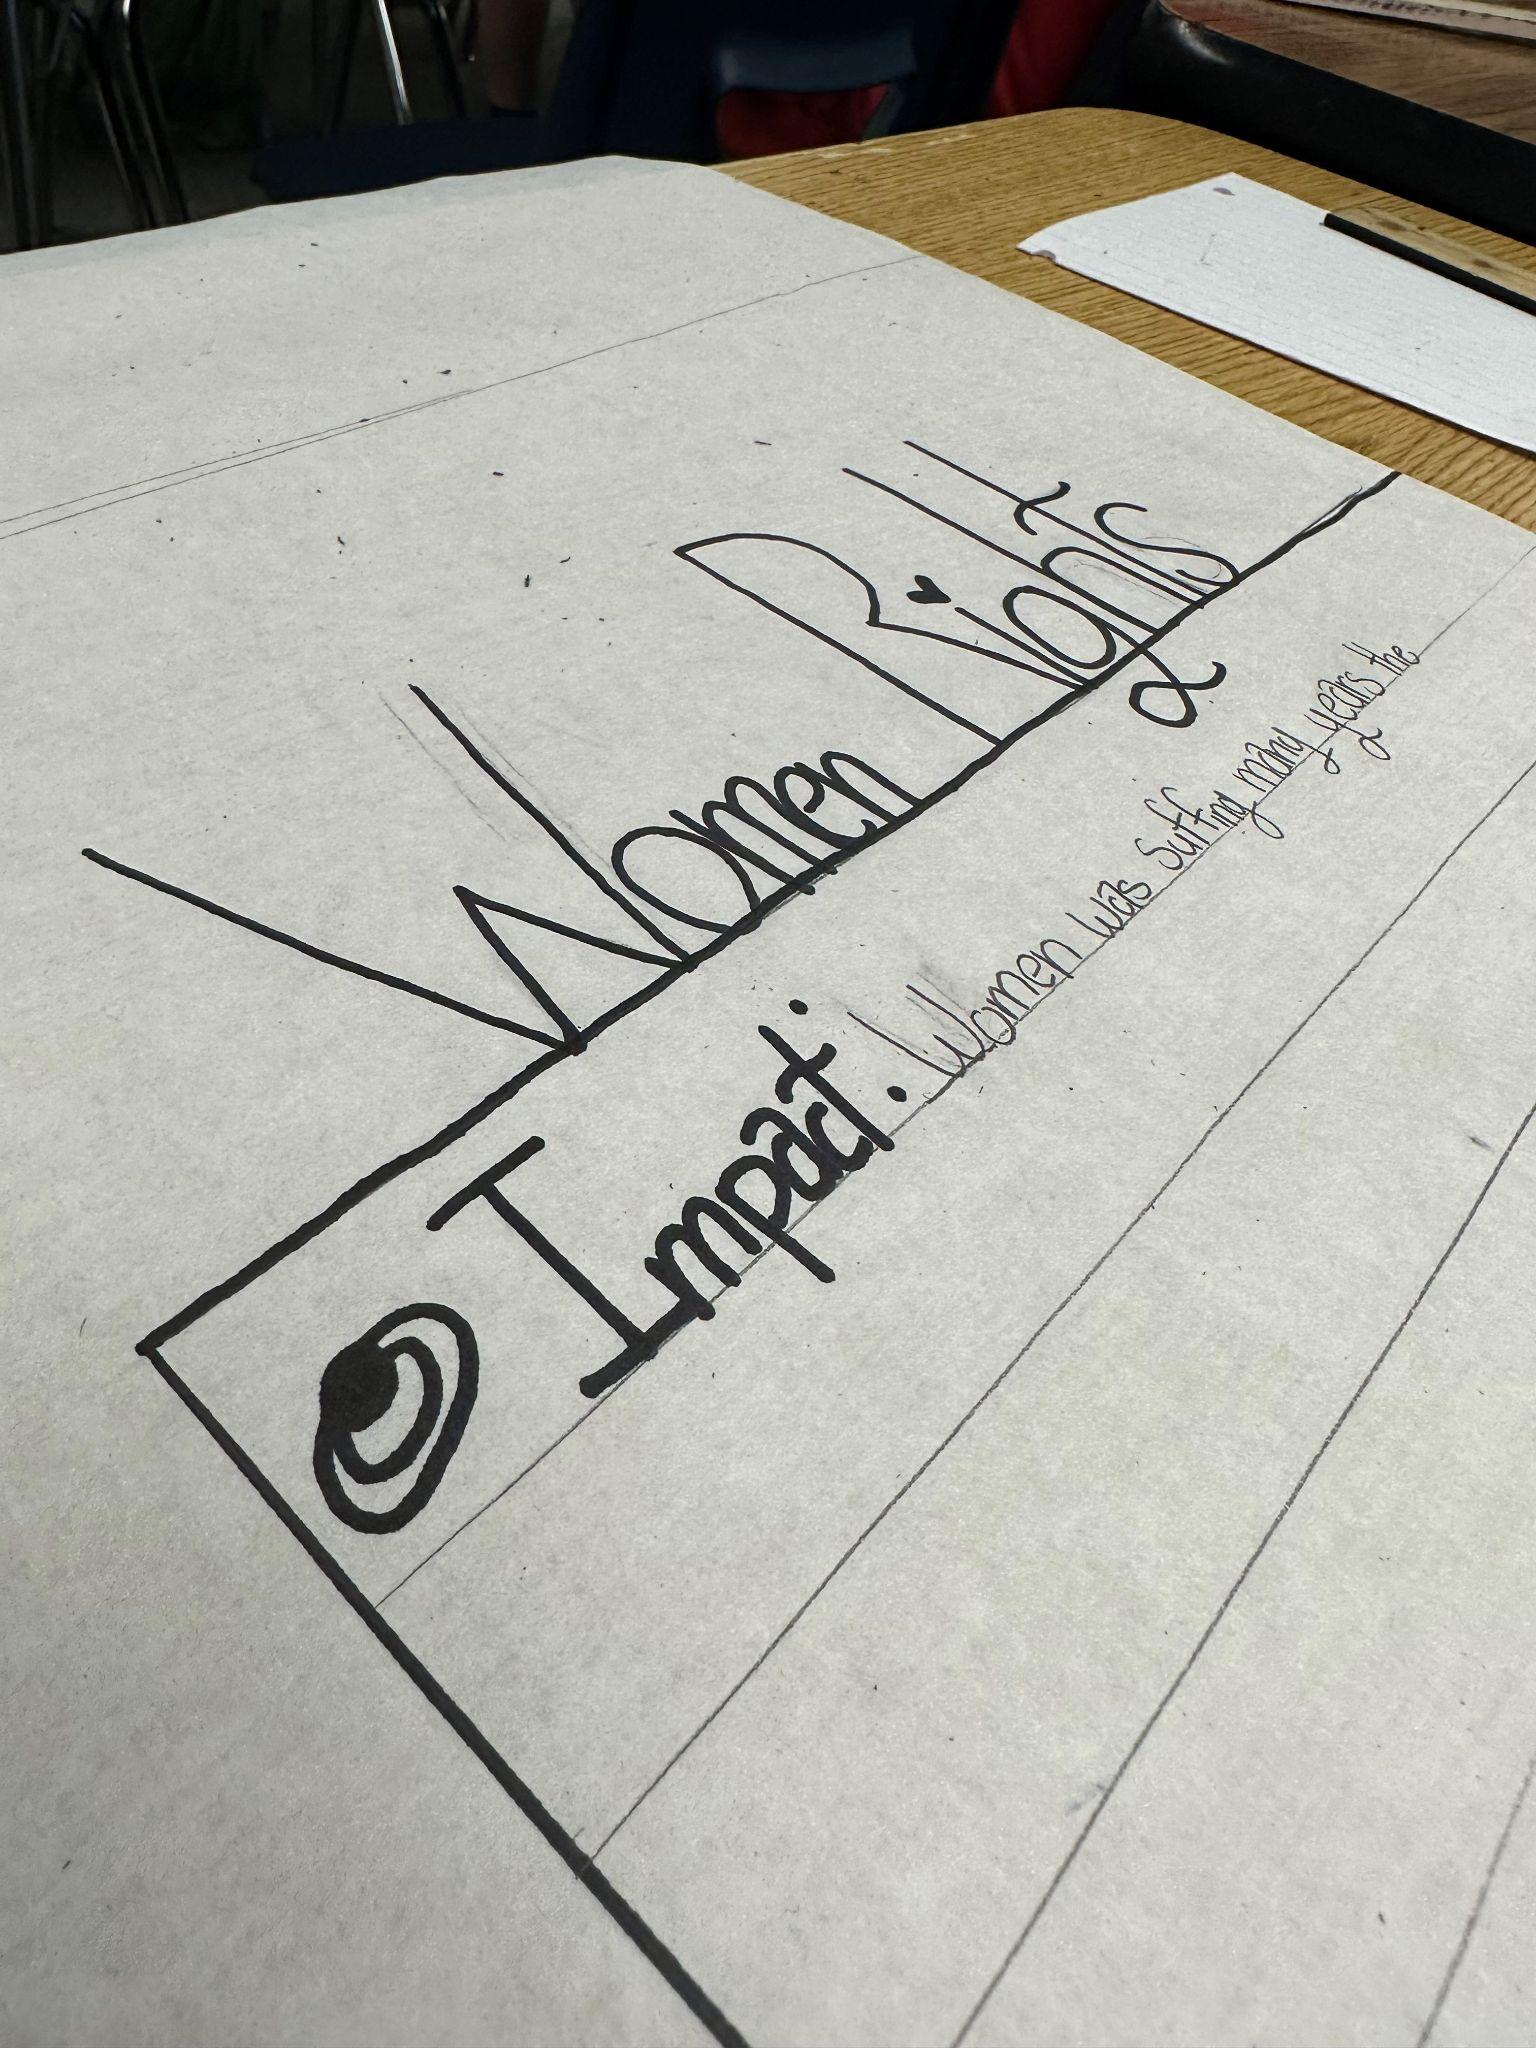 Women Rights
Impact: Women was suffing many years the